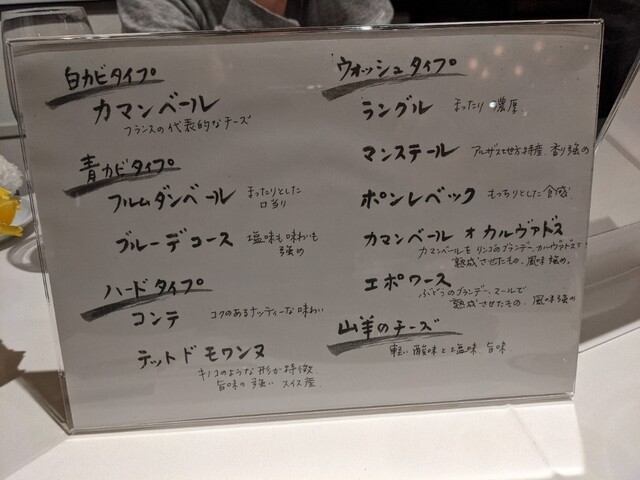 白カビタイプ
カマンベール
フランスの代表的なチーズ
青カビタイプ
フルムダンベール まったりとした
口当り
ブルーデコース 塩味も味わいも
強め
ハードタイプ
コンテ コクのあるナッティーな味わい
テットドモワンヌ
キノコのような形が特徴
旨味の強い スイス産
ウォッシュタイプ
ラングル まったり 濃厚
マンステール アルザス地方特産 香り強め
ポンレベック もっちりとした食感
カマンベール オ カルヴァドス
カマンベールをリンゴのブランデー、カルヴァドスで
熟成させたもの、風味強め。
エポワース
ぶどうのブランデー、マールで
熟成させたもの 風味強め
山羊のチーズ
軽い酸味と塩味、旨味